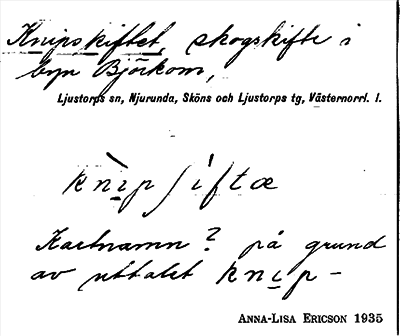 Knipskiftet, skogskifte i
byn Björkom,
Ljustorps sn, Njurunda, Sköns och Ljustorps tg, Västernorrl. l.
knipʃiftæ
Kartnamn? på grund
av uttalet knip-
ANNA-LISA ERICSON 1935